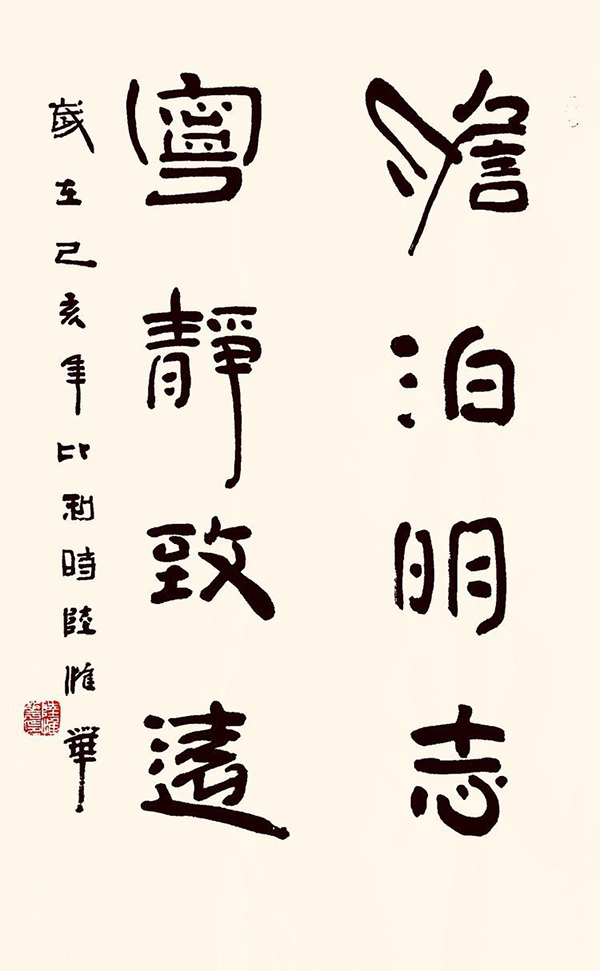 澹泊明志
寧靜致遠
歲在己亥年比利時陸惟華